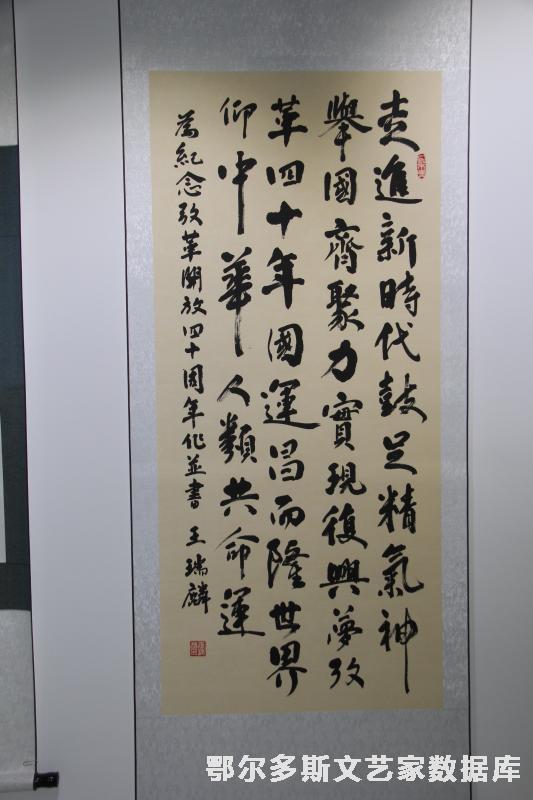 走進新時代鼓足精氣神
舉國齊聚力實現復興夢改
革四十年國運昌而隆世界
仰中華人類共命運
為紀念改革開放四十周年作並書 王瑞麟
鄂尔多斯文艺家数据库